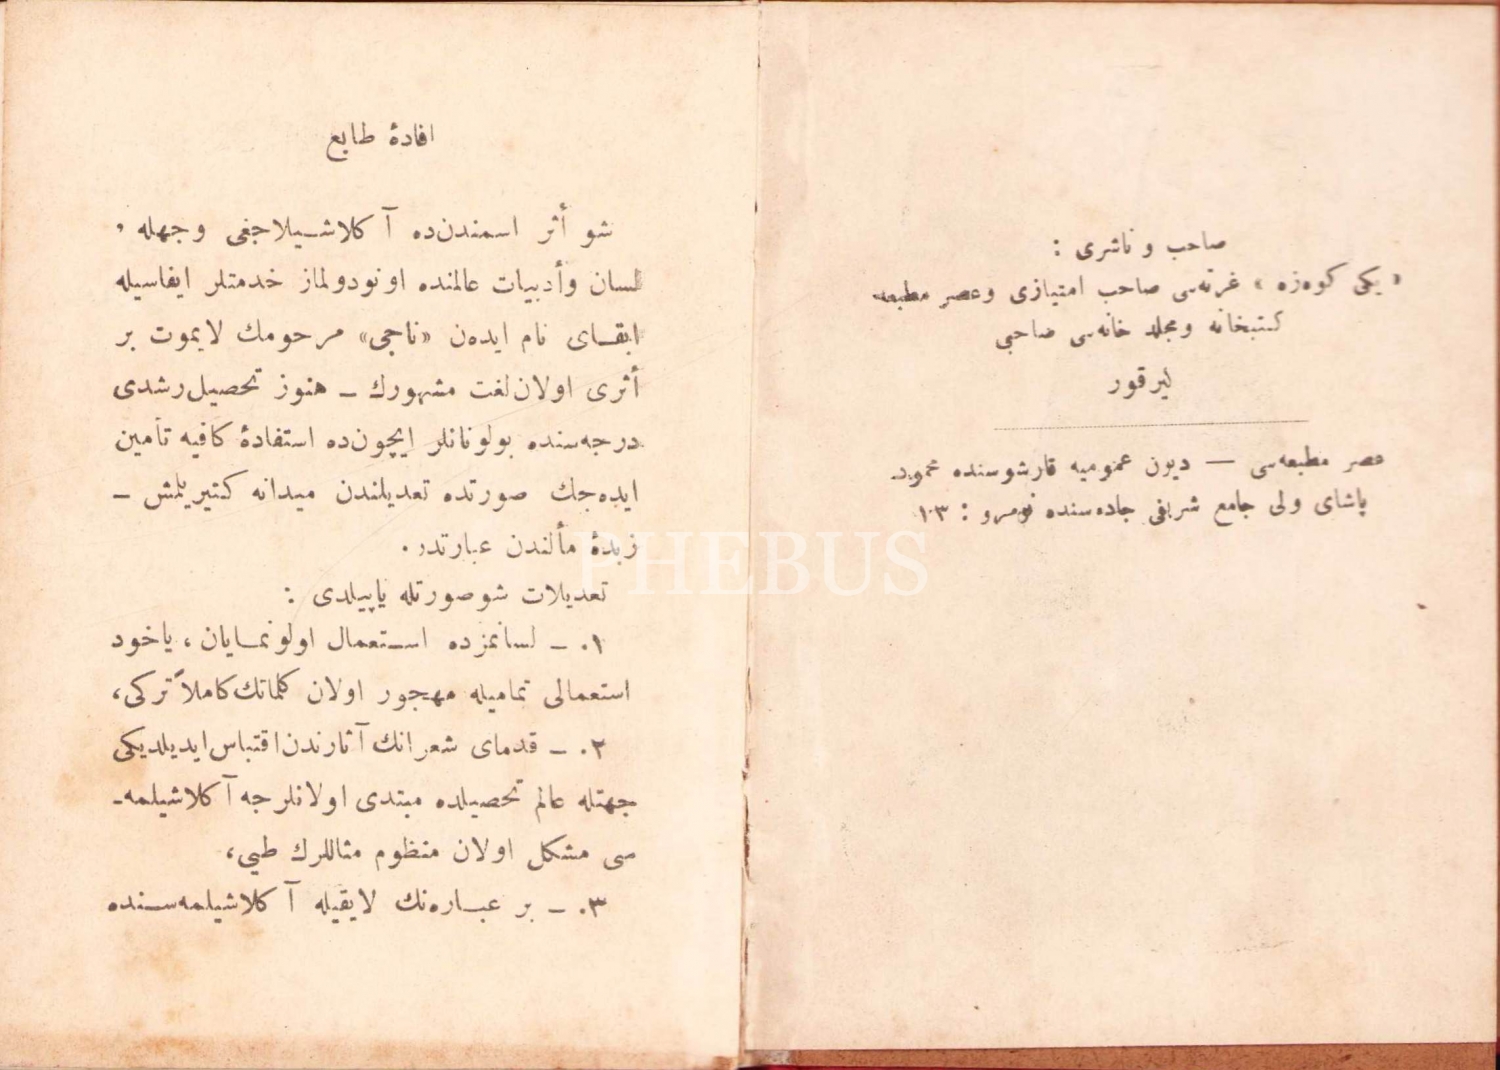 صاحب و ناشری :
« یکی کوه‌زه » غزته‌سی صاحب امتیازی وعصر مطبعه
کتبخانه ومجلد خانه‌سی صاحبی
لیرقور
عصر مطبعه‌سی — دیون عمومیه قارشوسنده محمود
پاشای ولی جامع شریفی جاده‌سنده نومرو : ١٠٣
افادۀ طابع
شو أثر اسمندن‌ده آکلاشیلاجغی وجهله ,
لسان وأدبیات عالمنده اونودولماز خدمتلر ایفاسیله
ابقای نام ایدەن «ناجی» مرحومك لایموت بر
أثری اولان لغت مشهورك ــ هنوز تحصیل رشدی
درجه‌سنده بولونانلر ایچون‌ده استفادۀ کافیه تأمین
ایده‌جك صورتده تعدیلندن میدانه کتیریلمش ــ
زبدۀ مألندن عبارتدر.
تعدیلات شو صورتله یاپیلدی :
١. ــ لسانمزده استعمال اولونمایان ، یاخود
استعمالی تمامیله مهجور اولان کلماتك کاملاً ترکی ،
٢. ــ قدمای شعرانك آثارندن اقتباس ایدیلدیکی
جهتله عالم تحصیلده مبتدی اولانلرجه آکلاشیلمه‌ـ
سی مشکل اولان منظوم مثاللرك طیی ،
٣. ــ بر عباره‌نك لایقیله آکلاشیلمه‌سنده
PHEBUS